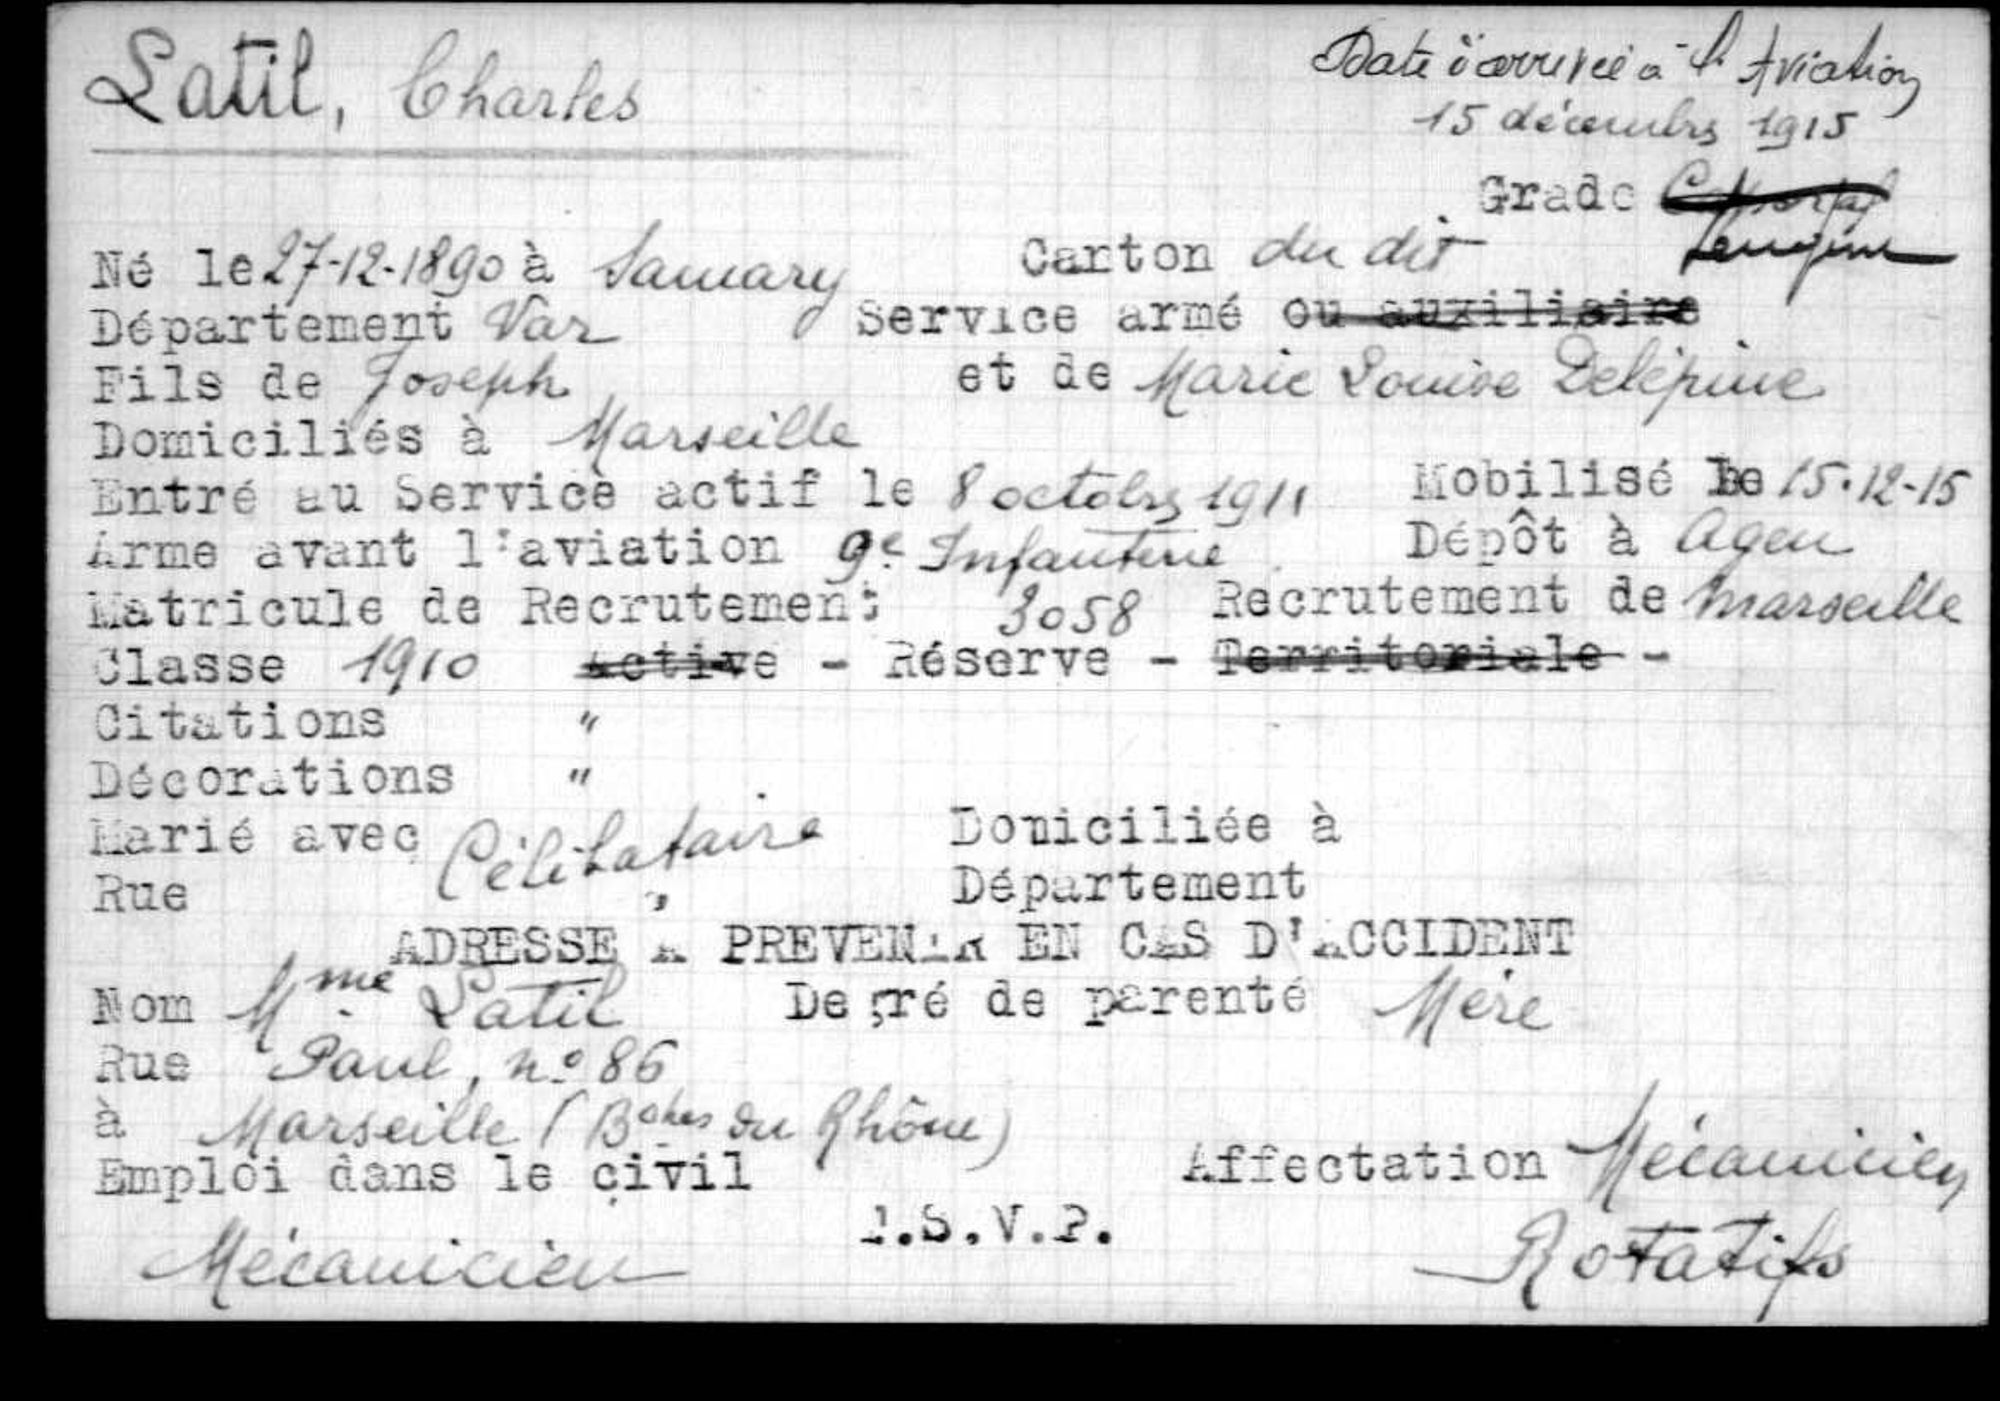 Latil, Charles
Date d'arrivée à l'Aviation
15 décembre 1915
Grade Caporal
Né le 27-12-1890 à Sanary Carton du dit
Département Var Service armé ou auxiliaire
Fils de Joseph et de Marie Louise Delépine
Domiciliés à Marseille
Entré au Service actif le 8 octobre 1911 Mobilisé le 15-12-15
Arme avant l'aviation 9e Infanterie Dépôt à Agen
Matricule de Recrutement 3058 Recrutement de Marseille
Classe 1910 Active - Réserve - Territoriale -
Citations "
Décorations "
Marié avec Célibataire Domiciliée à
Rue " Département
ADRESSE A PREVENIR EN CAS D'ACCIDENT
Nom Mme Latil Degré de parenté Mère
Rue Paul, n° 86
à Marseille (Bches du Rhône)
Emploi dans le civil Affectation Mécanicien
T.S.V.P.
Mécanicien Rotatifs